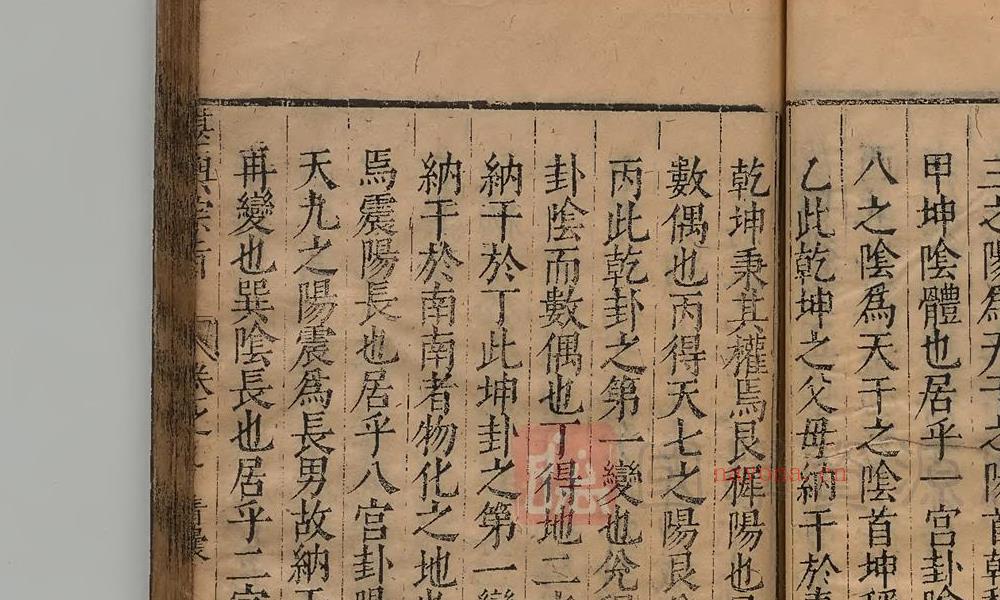 三之陽爲天干之陽首乾
甲坤陰體也居乎一宮卦陰
八之陰爲天干之陰首坤
乙此乾坤之父毋納干於
乾坤秉其權焉艮稺陽也
數偶也丙得天七之陽艮
丙此乾卦之第一變也兊
卦陰而數偶也丁得地二
納干於丁此坤卦之第一變
納干於南南者物化之地
焉震陽長也居乎八宮卦陽
天九之陽震爲長男故納
再變也巽陰長也居乎二宮
nayona.cn